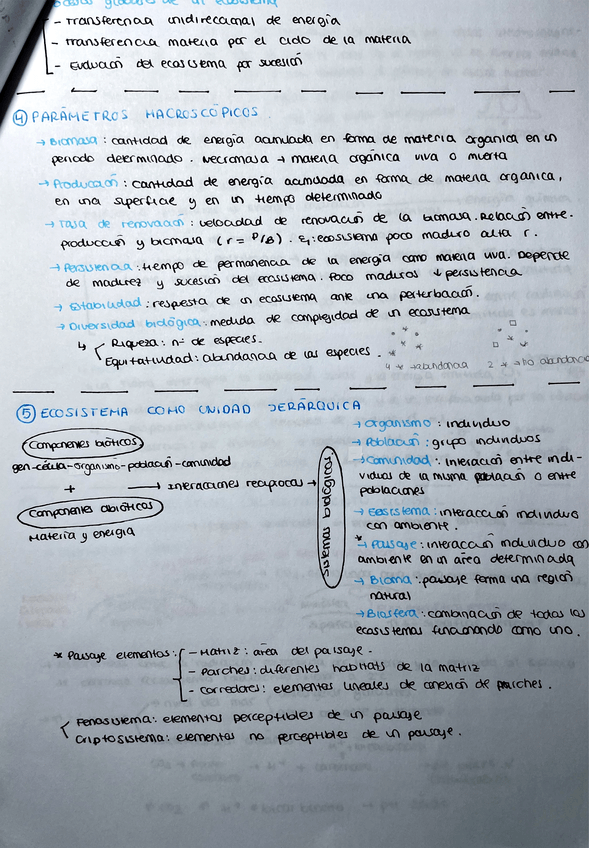 de un ecosistema
- Transferencia unidireccional de energía
- Transferencia materia por el ciclo de la materia
- Evolución del ecosistema por sucesión
④ PARÁMETROS MACROSCÓPICOS
→ Biomasa : cantidad de energía acumulada en forma de materia orgánica en un
periodo determinado. Necromasa → materia orgánica viva o muerta
→ Producción : cantidad de energía acumulada en forma de materia organica,
en una superficie y en un tiempo determinado
→ Tasa de renovación : velocidad de renovación de la biomasa. Relación entre.
producción y biomasa (r = P/B). Ej: ecosistema poco maduro alta r.
→ Persistencia : tiempo de permanencia de la energía como materia viva. Depende
de madurez y sucesión del ecosistema. Poco maduros ↓ persistencia
→ Estabilidad : respuesta de un ecosistema ante una perturbación.
→ Diversidad biológica : medida de complejidad de un ecosistema
↳ Riqueza : nº de especies.
Equitatividad : abundancia de las especies.
4 * → abundancia 2 * → no abundancia
⑤ ECOSISTEMA COMO UNIDAD JERÁRQUICA
Componentes bióticos
gen-célula-organismo-población-comunidad
+ → Interacciones recíprocas →
Componentes abióticos
Materia y energía
Sistemas biológicos
→ Organismo : individuo
→ Población : grupo individuos
→ Comunidad : interacción entre indi-
viduos de la misma población o entre
poblaciones
→ Ecosistema : interacción individuo
con ambiente.
* → Paisaje : interacción individuo con
ambiente en un área determinada
→ Bioma : paisaje forma una región
natural
→ Biosfera : combinación de todos los
ecosistemas funcionando como uno.
* Paisaje elementos : - Matriz : área del paisaje.
- Parches : diferentes habitats de la matriz
- Corredores : elementos lineales de conexión de parches.
Fenosistema : elementos perceptibles de un paisaje
Criptosistema : elementos no perceptibles de un paisaje.